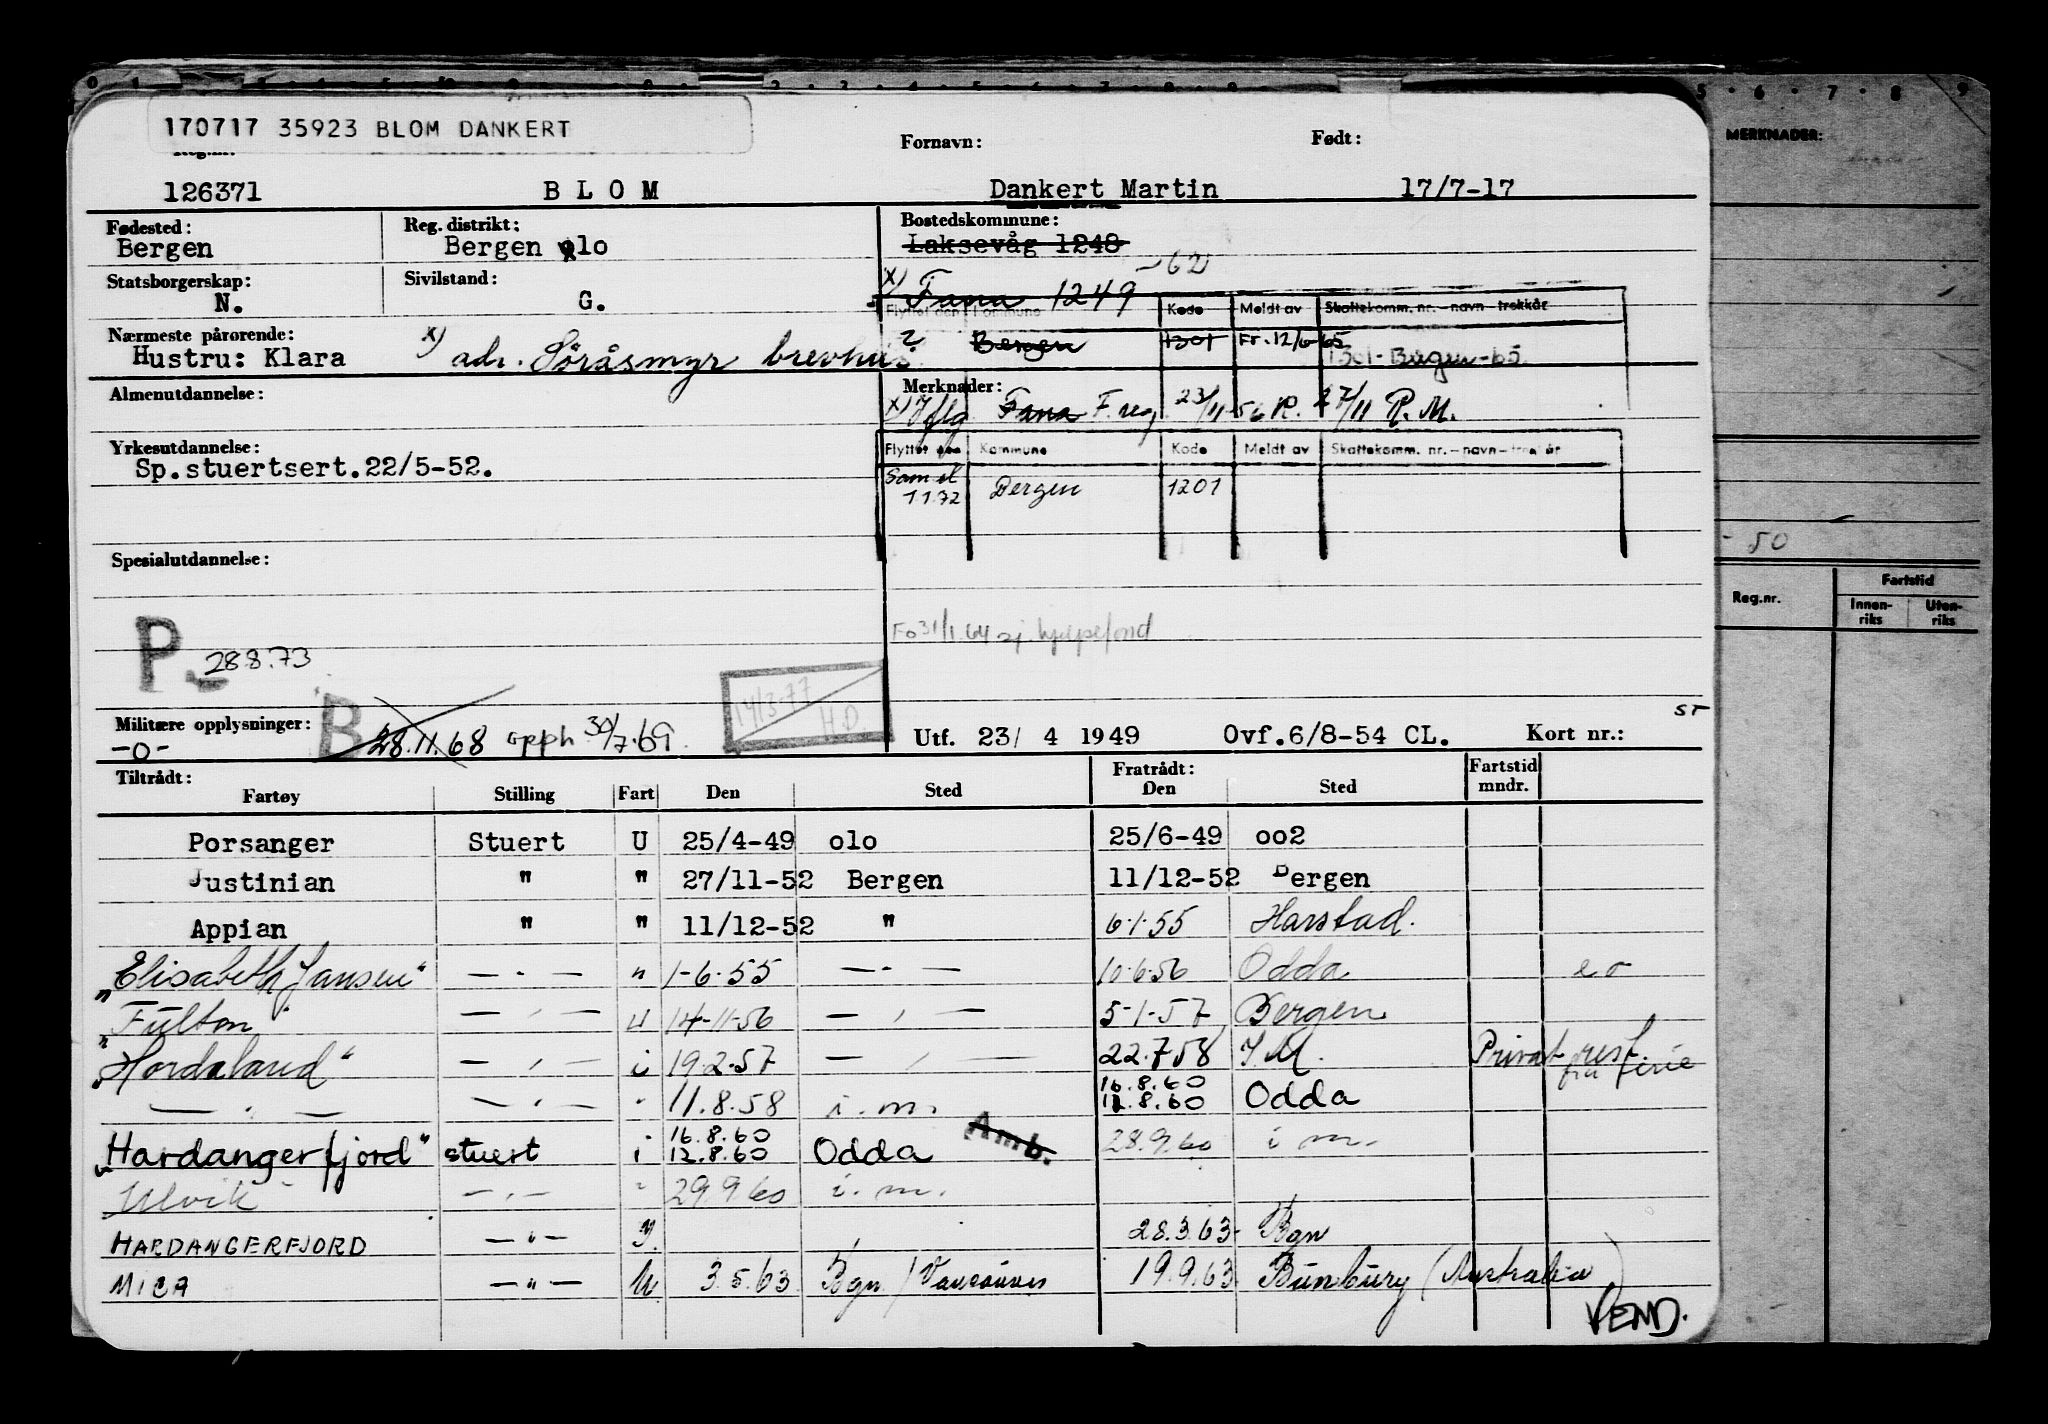 170717 35923 BLOM DANKERT
Fornavn: Født:
126371 BLOM Dankert Martin 17/7-17
Fødested: Reg. distrikt: Bostedskommune:
Bergen Bergen olo Laksevåg 1248
Statsborgerskap: Sivilstand: x) Fana 1249 -62
N. G.
Flyttet den Kommune Kode Meldt av Skattekomm. nr.-navn-trekkår
Nærmeste pårørende: ? Bergen 1301 Fr. 12/6-65 1301-Bergen-65.
Hustru: Klara x) adr. Söråsmyr brevhus
Almenutdannelse: Merknader:
x) Iflg. Fana F.reg 23/11-56 R. 27/11 R.M.
Yrkesutdannelse: Flyttet den Kommune Kode Meldt av Skattekomm. nr.-navn-trekkår
Sp.stuertsert.22/5-52.
1 1 72 Bergen 1201
Spesialutdannelse:
Fo 31/1.64 sj. hjelpefond
P. 28.8.73
14/3-77 H.D.
Militære opplysninger: B 28.11.68 opph 30/7.69.
-o- Utf. 23/ 4 1949 Ovf.6/8-54 CL. Kort nr.: ST
Tiltrådt: Fratrådt: Fartstid
Fartøy Stilling Fart Den Sted Den Sted mndr.
Porsanger Stuert U 25/4-49 olo 25/6-49 oo2
Justinian " " 27/11-52 Bergen 11/12-52 Bergen
Appian " " 11/12-52 " 6.1.55 Harstad.
"Elisabeth Jansen" — " — " 1-6.55 — " — 10.6.56 Odda
"Fulton" — " — u 14-11-56 — " — 5-1-57 Bergen
"Hordaland" — " — i 19.2.57 — " — 22.7.58 I.M. Privat rest. fra ferie
— " — — " — " 11.8.58 i.m. 16.8.60 12.8.60 Odda
"Hardangerfjord" stuert i 16.8.60 12.8.60 Odda Amb. 28.9.60 i m.
Ulvik — " — " 29.9.60 i. m.
HARDANGERFJORD — " — I. 28.3.63 Bgn
MICA — " — U. 3.5.63 Bgn / Vancouver 19.9.63 Bunbury (Australia)
VEND.
MERKNADER:
- 50
Reg.nr. Fartstid
Innen-riks Uten-riks